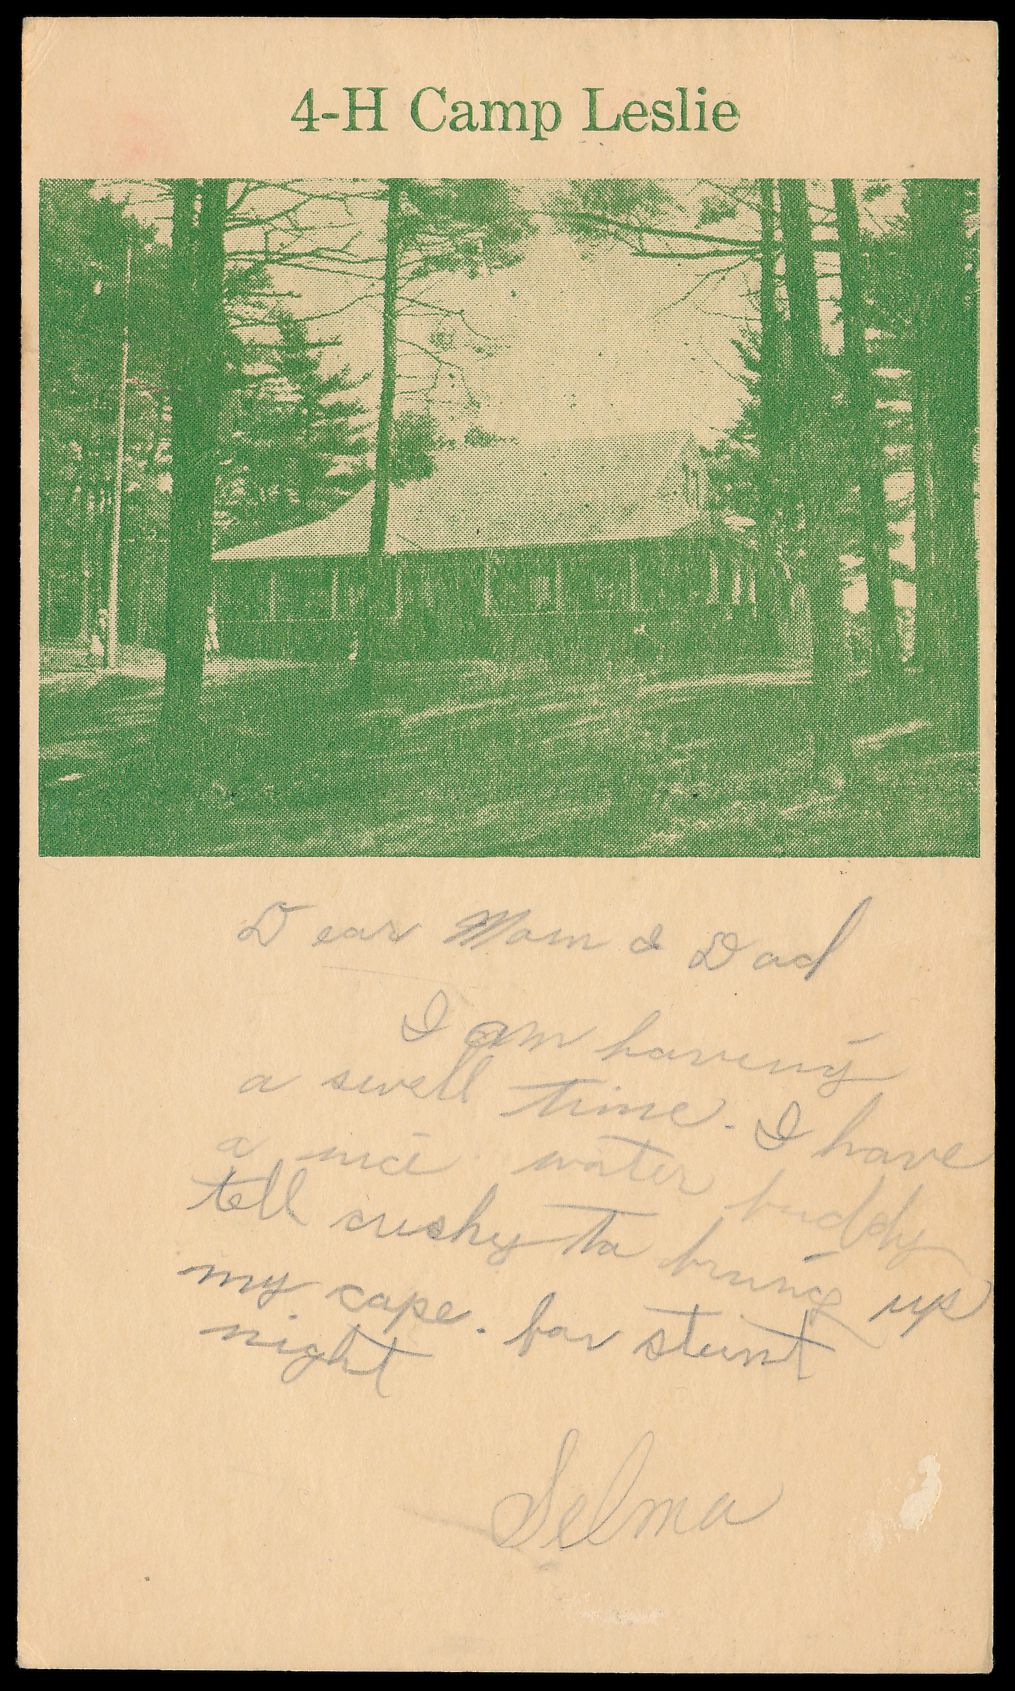 4-H Camp Leslie
Dear Mom & Dad
I am having
a swell time. I have
a nice water buddy
tell to bring up
my cape. for stunt
night
Selma